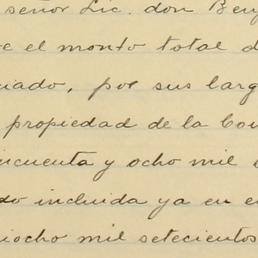 señor Lic. don Ben
e el monto total d
iado, por sus larg
propiedad de la Co
incuenta y ocho mil
do incluida ya en e
iocho mil setecientos